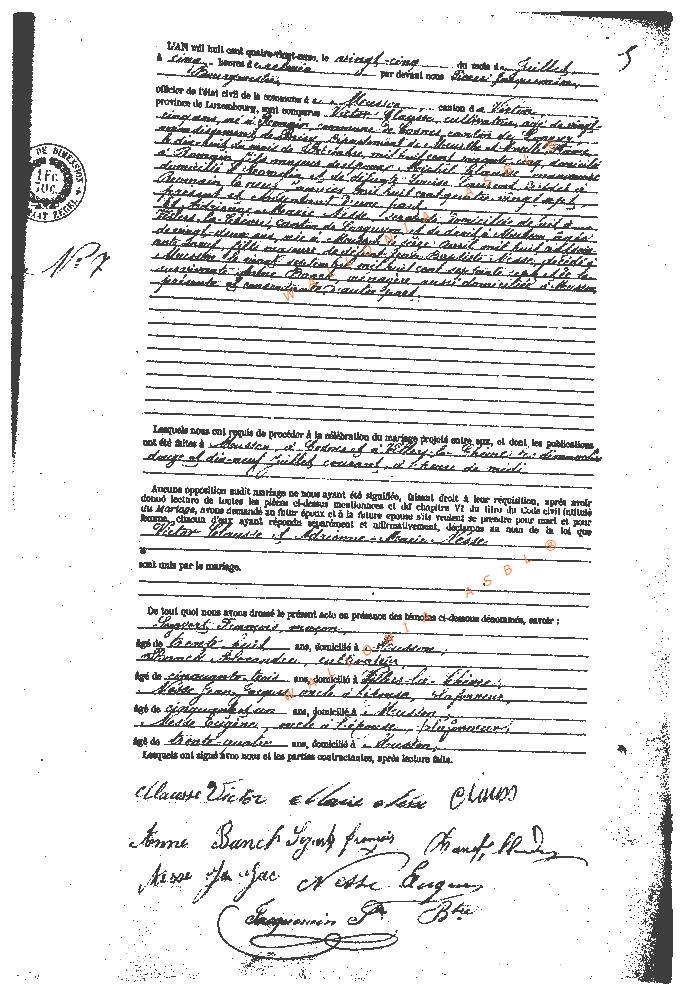 5
L'AN mil huit cent quatre-vingt-onze, le vingt-cinq du mois de Juillet,
à cinq heures de relevée par devant nous
Bourgmestre,
officier de l'état civil de la commune de Musson, canton de Virton
province de Luxembourg, sont comparus Victor Clausse, cultivateur, âgé de vingt-
cinq ans, né à Romain commune de Cosnes, canton de Longwy
arrondissement de Briey, département de Meurthe et Moselle, France
le dix-huit du mois de mil huit cent soixante cinq, domicilié
à Romain, fils majeur
domicilié à Romain et de défunte Louise décédée à
Romain le neuf janvier mil huit cent quatre vingt sept,
présent et consentant d'une part.
Et Adrienne-Marie Nesse domiciliée de fait à
Villers-la-Chèvre, canton de Longuyon et de droit à Musson, âgée
de vingt-deux ans, née à Musson le seize avril mil huit
ante neuf, fille mineure de défunt Jean Baptiste Nesse, décédé à
Musson le vingt septembre mil huit cent septante sept et de la
survivante Anne Banck, ménagère aussi domiciliée à Musson,
présente et consentante d'autre part.
DE DIMENSION
1 FC
N° 7
Lesquels nous ont requis de procéder à la célébration du mariage projeté entre eux, et dont les publications
ont été faites à Musson, à Cosnes et à Villers-la-Chèvre les dimanches
douze et dix-neuf juillet courant, à l'heure de midi
Aucune opposition audit mariage ne nous ayant été signifiée, faisant droit à leur réquisition, après avoir
donné lecture de toutes les pièces ci-dessus mentionnées et du chapitre VI du titre du Code civil intitulé
du Mariage, avons demandé au futur époux et à la future épouse s'ils veulent se prendre pour mari et pour
femme, chacun d'eux ayant répondu séparément et affirmativement, déclarons au nom de la loi que
Victor Clausse et Adrienne-Marie Nesse
sont unis par le mariage.
De tout quoi nous avons dressé le présent acte en présence des témoins ci-dessous dénommés, savoir :
François, maçon,
âgé de trente huit ans, domicilié à Musson,
Banck Alexandre, cultivateur,
âgé de cinquante trois ans, domicilié à Villers-la-Chèvre,
Nesse Jean Jacques oncle à l'épouse, plafonneur,
âgé de cinquante et un ans, domicilié à Musson,
Nesse Eugène, oncle à l'épouse, plafonneur,
âgé de trente-quatre ans, domicilié à Musson,
Lesquels ont signé avec nous et les parties contractantes, après lecture faite.
Clausse Victor Marie Clauss
Anne Banck françois
Nesse Jn Jac Nesse Eugène
Jacquemin Bte
WALLONIA ASBL ®
WALLONIA ASBL ®